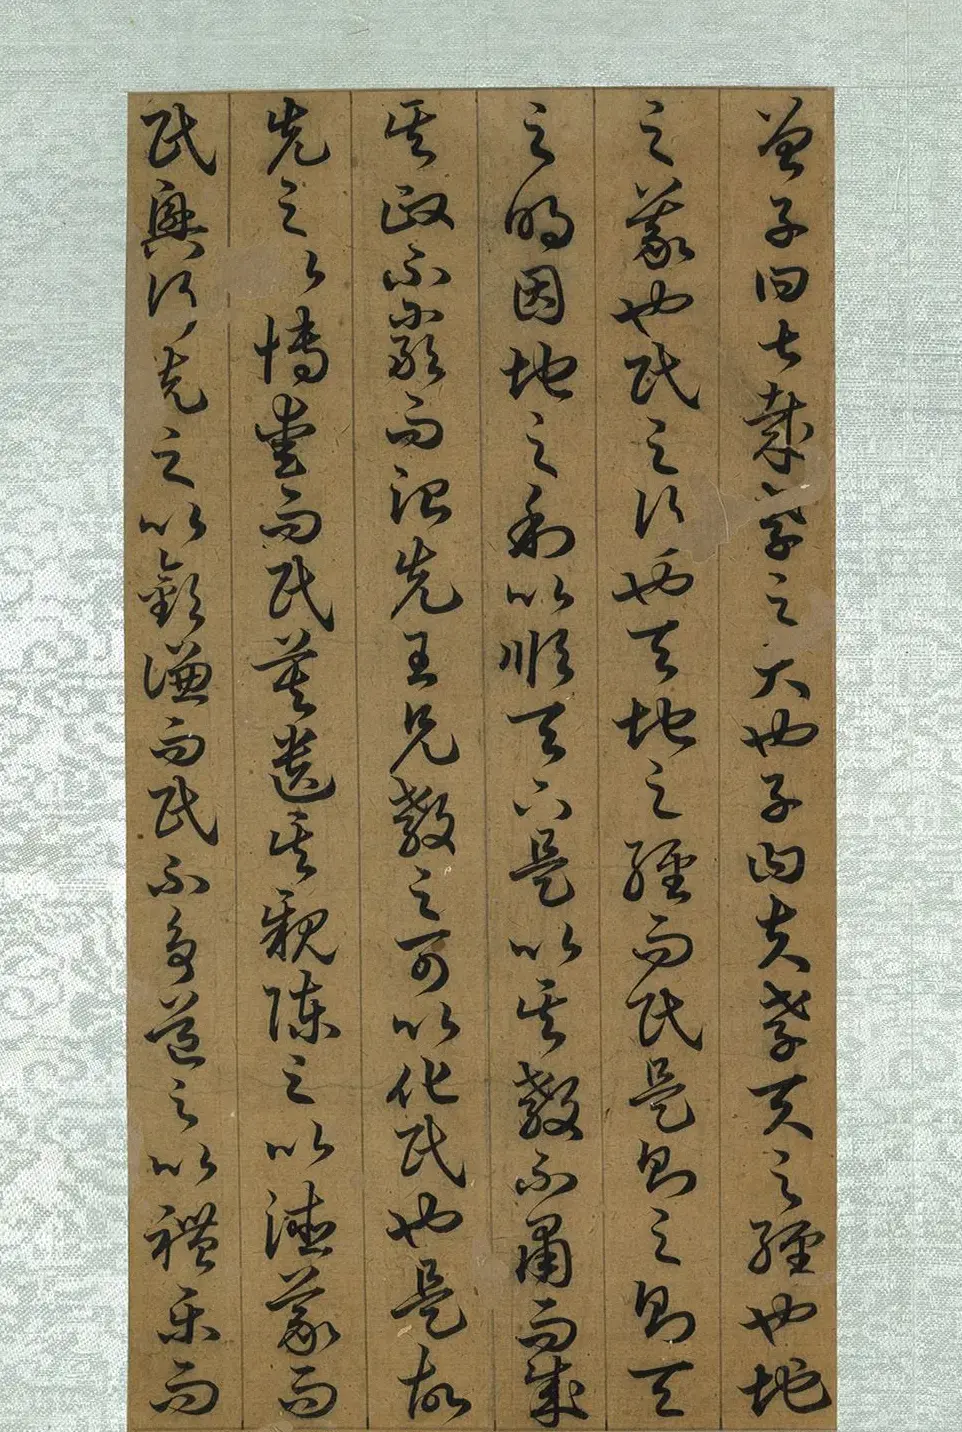 曾子曰甚哉孝之大也子曰夫孝天之經也地
之義也民之行也天地之經而民是則之則天
之明因地之利以順天下是以其教不肅而成
其政不嚴而治先王見教之可以化民也是故
先之以博愛而民莫遺其親陳之以德義而
民興行先之以敬讓而民不爭道之以禮樂而